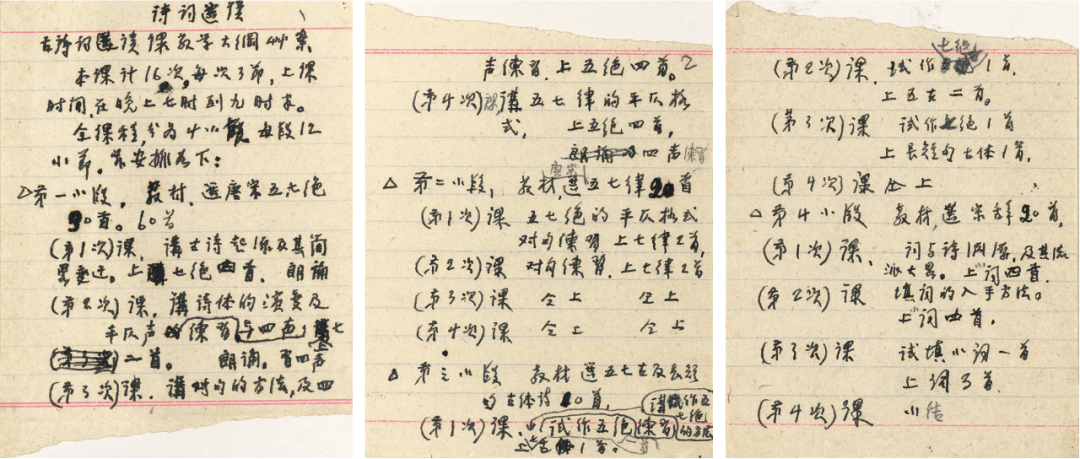 诗词选读
古诗词选读课教学大纲草案
本课计16次,每次3节,上课
时间在晚上七时到九时半。
全课程分为4小段 每段12
小节。
下:
△第一小段。教材。选唐宋五七绝
20首。60首
(第1次)课,讲古诗起源及其简
上 七绝四首。朗诵
(第2次)课,讲诗体的演变及
平仄声 练习 与四声 七
二首。 朗诵。
(第3次)课。讲对句的方法,及四
声练习,上五绝四首。2
(第4次)课 讲五七律的平仄格
式, 上五绝四首,
朗诵 四声练习
△第二小段, 教材,选五七律20首
(第1次)课 五七绝的平仄格式
对句练习 上七律2首,
(第2次)课 对句练习,上七律2首
(第3次)课 仝上 仝上
(第4次)课 仝上 仝上
△第三小段 教材 选五七古及长短
的古体诗20首,
(第1次)课, 试作五绝 练习
上 1首。
七绝
(第2次)课,试作 1首,
上五古二首。
(第3次)课 试作七绝1首
上长短句七体1首,
(第4次)课 仝上
△第4小段 教材,选宋辞20首,
(第1次)课、 词与诗 渊源,及其流
派大略。上词四首
(第2次)课 填词的入手方法。
上词四首,
(第3次)课 试填小词一首
上词3首
(第4次)课 小结